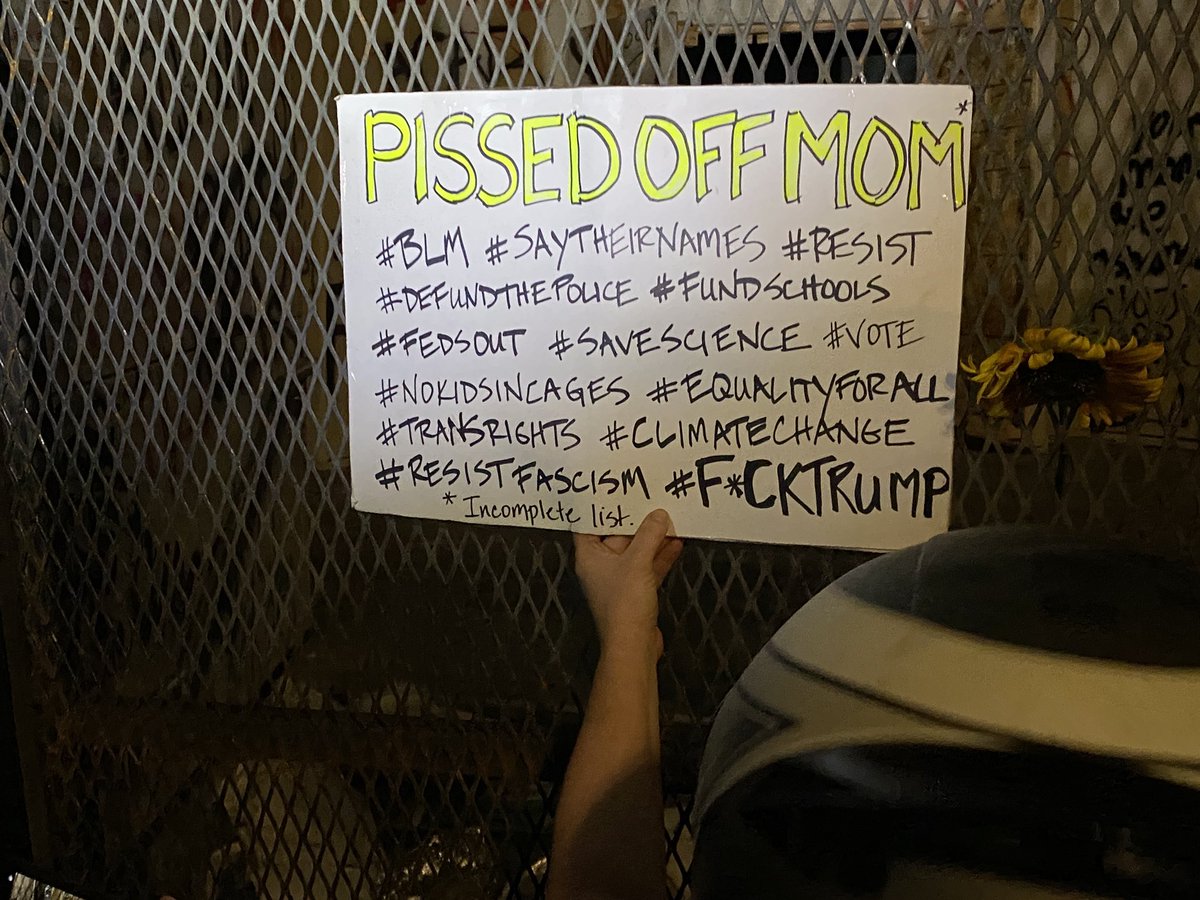 PISSED OFF MOM*
#BLM #SAYTHEIRNAMES #RESIST
#DEFUNDTHEPOLICE #FUNDSCHOOLS
#FEDSOUT #SAVESCIENCE #VOTE
#NOKIDSINCAGES #EQUALITYFORALL
#TRANSRIGHTS #CLIMATECHANGE
#RESISTFASCISM #F*CKTRUMP
* Incomplete list.